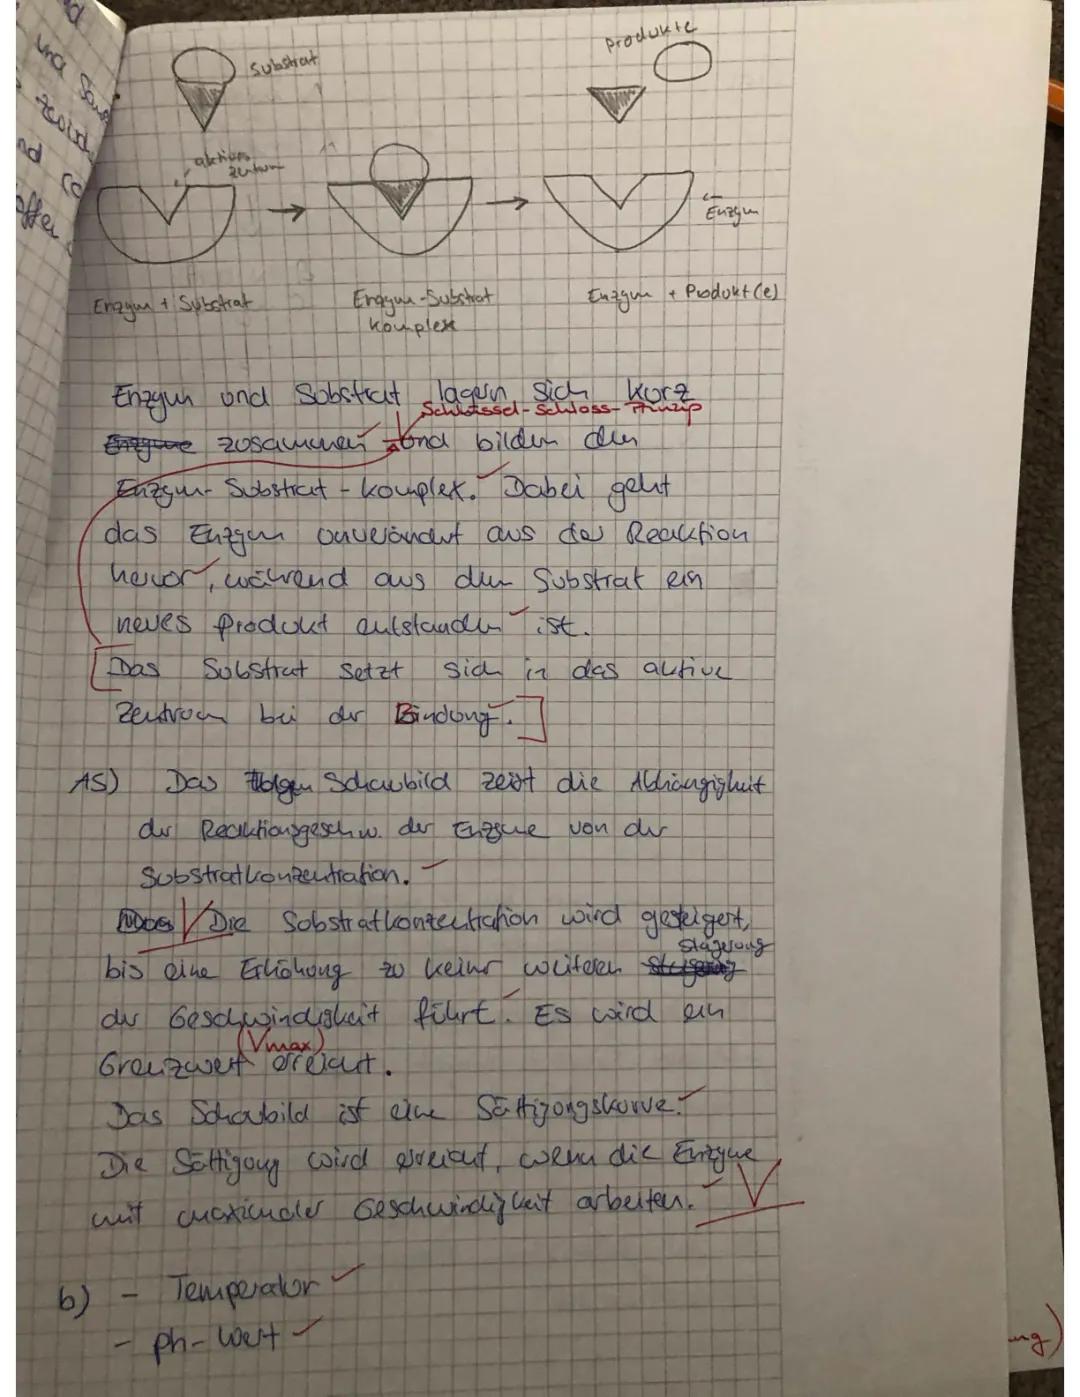 Substrat
Produkte
aktives
Zentrum
Enzym
Enzym + Substrat
Enzym-Substrat
Komplex
Enzym + Produkt(e)
Enzym und Substrat lagern sich kurz
Schlüssel-Schloss-Prinzip
zusammen und bilden den
Enzym-Substrat-Komplex. Dabei geht
das Enzym unverändert aus der Reaktion
hervor, während aus dem Substrat ein
neues Produkt entstanden ist.
[Das Substrat setzt sich in das aktive
Zentrum bei der Bindung.]
A5) Das Schaubild zeigt die Abhängigkeit
der Reaktionsgeschw. der Enzyme von der
Substratkonzentration.
Die Substratkonzentration wird gesteigert,
Steigerung
bis eine Erhöhung zu keiner weiteren
der Geschwindigkeit führt. Es wird ein
(Vmax)
Grenzwert erreicht.
Das Schaubild ist eine Sättigungskurve.
Die Sättigung wird erreicht, wenn die Enzyme
mit maximaler Geschwindigkeit arbeiten.
b) - Temperatur
- ph-Wert
und
ng)